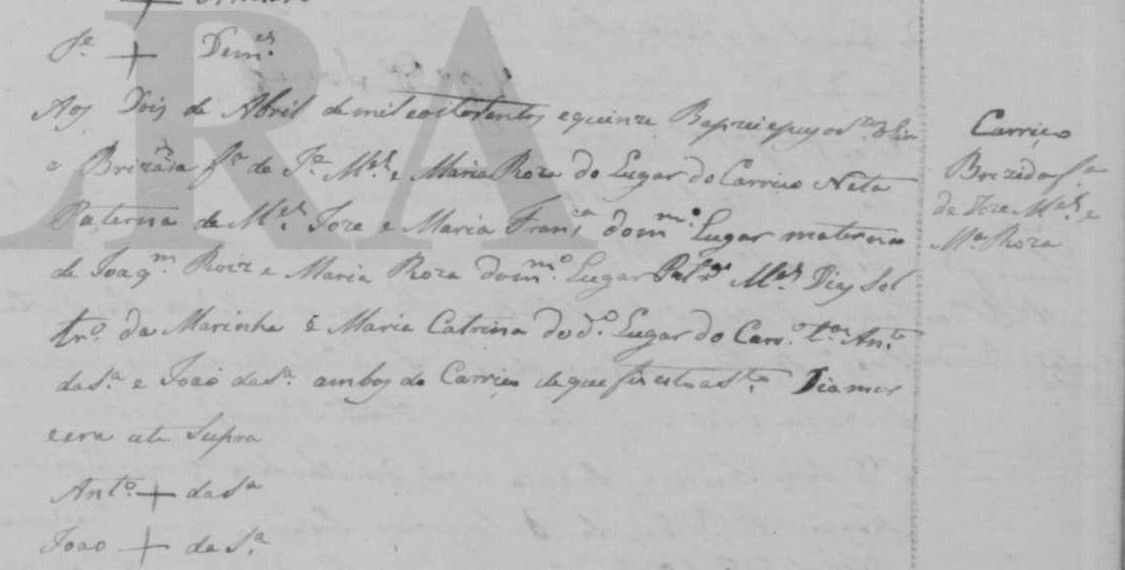 Je + Dom.es
Aos Dois de Abril de mil eoitocentos equinze Baptizei epuz os
a Brizida f.a de J.e M.el e Maria Roza do Lugar do Carriço Neta
Paterna de M.el Joze e Maria Fran.ca dom.mo Lugar materna
de Joaq.m Roiz e Maria Roza dom.mo Lugar Pad.os M.el Dias Sol
tr.o da Marinha e Maria Catrina do d.o Lugar do Carr.o t.as An.to
da S.a e Joaõ da S.a ambos do Carriço de que fis este as.to Dia mes
e era ut Supra
Ant.o + da S.a
Joao + da S.a
Carriço
Brizida f.a
de Joze M.el e
M.a Roza
RA